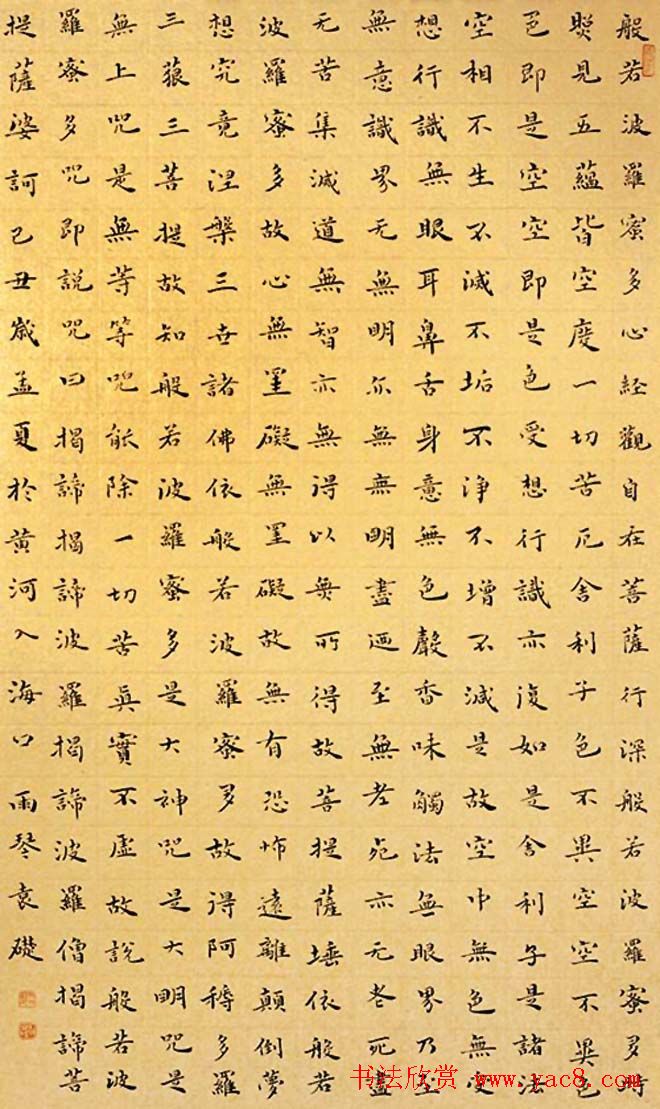 般若波羅蜜多心経觀自在菩薩行深般若波羅蜜多時
照見五蘊皆空度一切苦厄舍利子色不異空空不異色
色即是空空即是色受想行識亦復如是舍利子是諸法
空相不生不滅不垢不淨不增不減是故空中無色無受
想行識無眼耳鼻舌身意無色聲香味觸法無眼界乃至
無意識界无無明亦無無明盡迺至無老死亦无老死盡
无苦集滅道無智亦無得以無所得故菩提薩埵依般若
波羅蜜多故心無罣礙無罣礙故無有恐怖遠離顛倒夢
想究竟涅槃三世諸佛依般若波羅蜜多故得阿耨多羅
三藐三菩提故知般若波羅蜜多是大神咒是大明咒是
無上咒是無等等咒能除一切苦真實不虛故說般若波
羅蜜多咒即說咒曰揭諦揭諦波羅揭諦波羅僧揭諦菩
提薩婆訶己丑歲孟夏於黄河入海口雨琴袁礎
书法欣赏 www.yac8.com